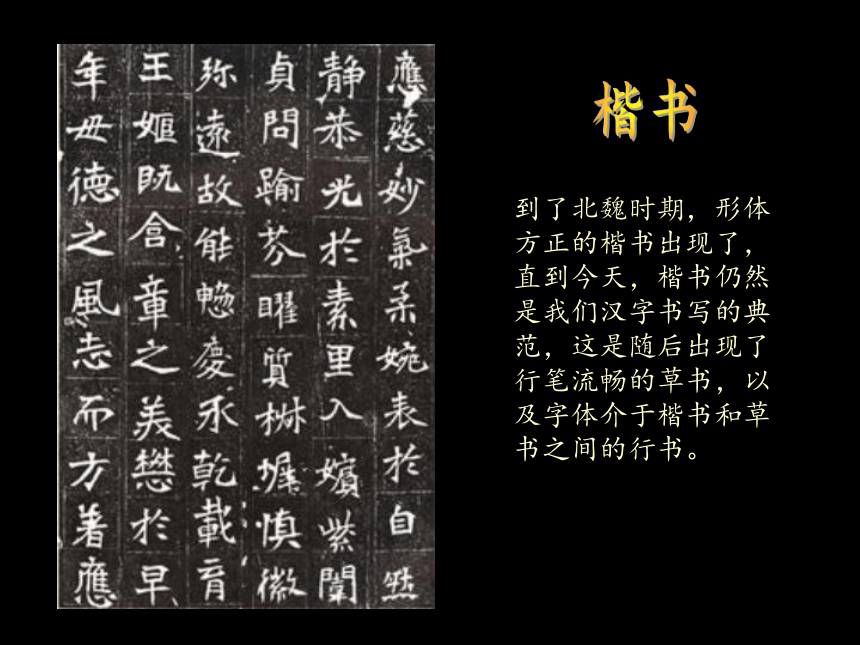 應慈妙氣柔婉表於自然
靜恭光於素里入嬪紫闈
貞問踰芬曜質椒墀慎徽
弥遠故能慶永乾載育
王姬既含章之美懋於早
年毋德之風志而方著應
楷书
到了北魏时期，形体
方正的楷书出现了，
直到今天，楷书仍然
是我们汉字书写的典
范，这是随后出现了
行笔流畅的草书，以
及字体介于楷书和草
书之间的行书。